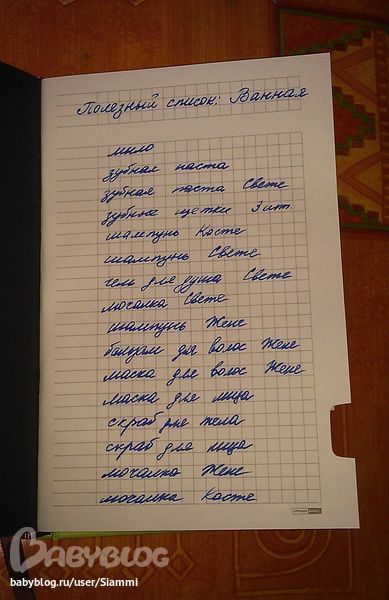 Полезный список: Ванная
мыло
зубная паста
зубная паста Свете
зубные щетки 3 шт.
шампунь Косте
шампунь Свете
гель для душа Свете
мочалка Свете
шампунь Жене
бальзам для волос Жене
маска для волос Жене
маска для лица
скраб для тела
скраб для лица
мочалка Жене
мочалка Косте
BABYBLOG
babyblog.ru/user/Siammi